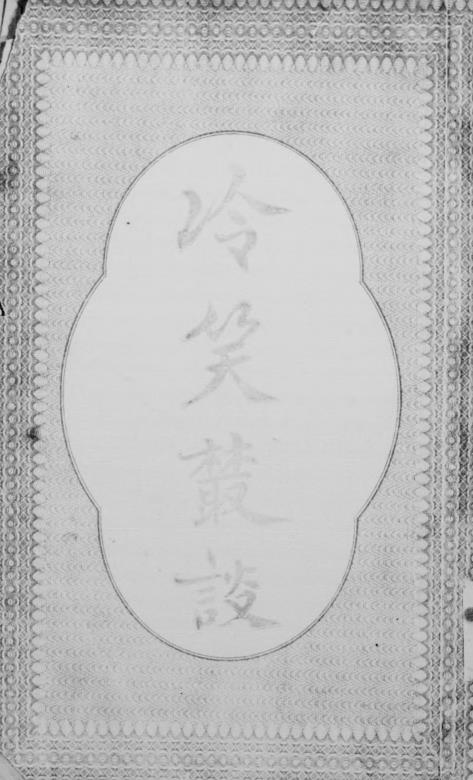 冷笑叢談